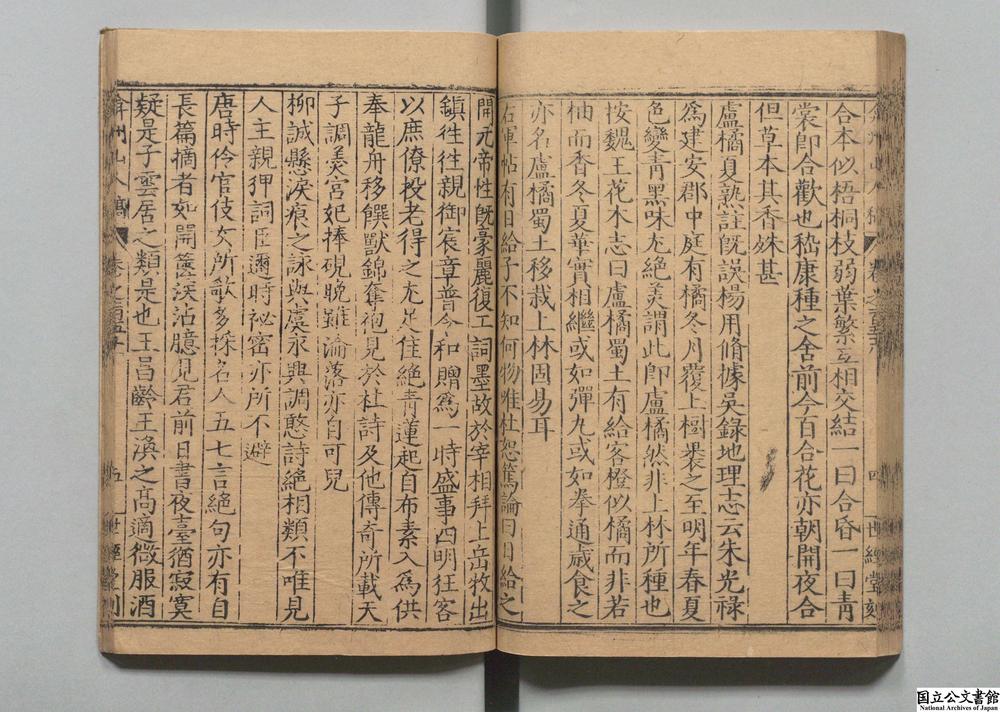 合本似梧桐枝弱葉繁互相交結一曰合昏一曰青
裳即合歡也嵇康種之舍前今百合花亦朝開夜合
但草本其香姝甚
盧橘夏熟註既誤楊用脩據吳錄地理志云朱光祿
為建安郡中庭有橘冬月覆上樹裹之至明年春夏
色變青黑味尤絕美謂此即盧橘然非上林所種也
按魏王花木志曰盧橘蜀土有給客橙似橘而非若
柚而香冬夏華實相繼或如彈丸或如拳通歲食之
亦名盧橘蜀土移栽上林固易耳
右軍帖有日給子不知何物唯杜恕篤論曰日給之
世經堂刻
開元帝性既豪麗復工詞墨故於宰相拜上岳牧出
鎮往往親御宸章普令和贈為一時盛事四明狂客
以庶僚投老得之尤足佳絕青蓮起自布素入為供
奉龍舟移饌獸錦奪袍見於杜詩及他傳奇所載天
子調羹宮妃捧硯晚雖淪落亦自可兒
柳誠懸淚痕之詠與虞永興調憨詩絕相類不唯見
人主親狎詞臣邇時祕密亦所不避
唐時伶官伎女所歌多採名人五七言絕句亦有自
長篇摘者如開篋淚沾臆見君前日書夜臺猶寂寞
疑是子雲居之類是也王昌齡王渙之高適微服酒
弇州山人稿
五
世經堂刻
国立公文書館
National Archives of Japan